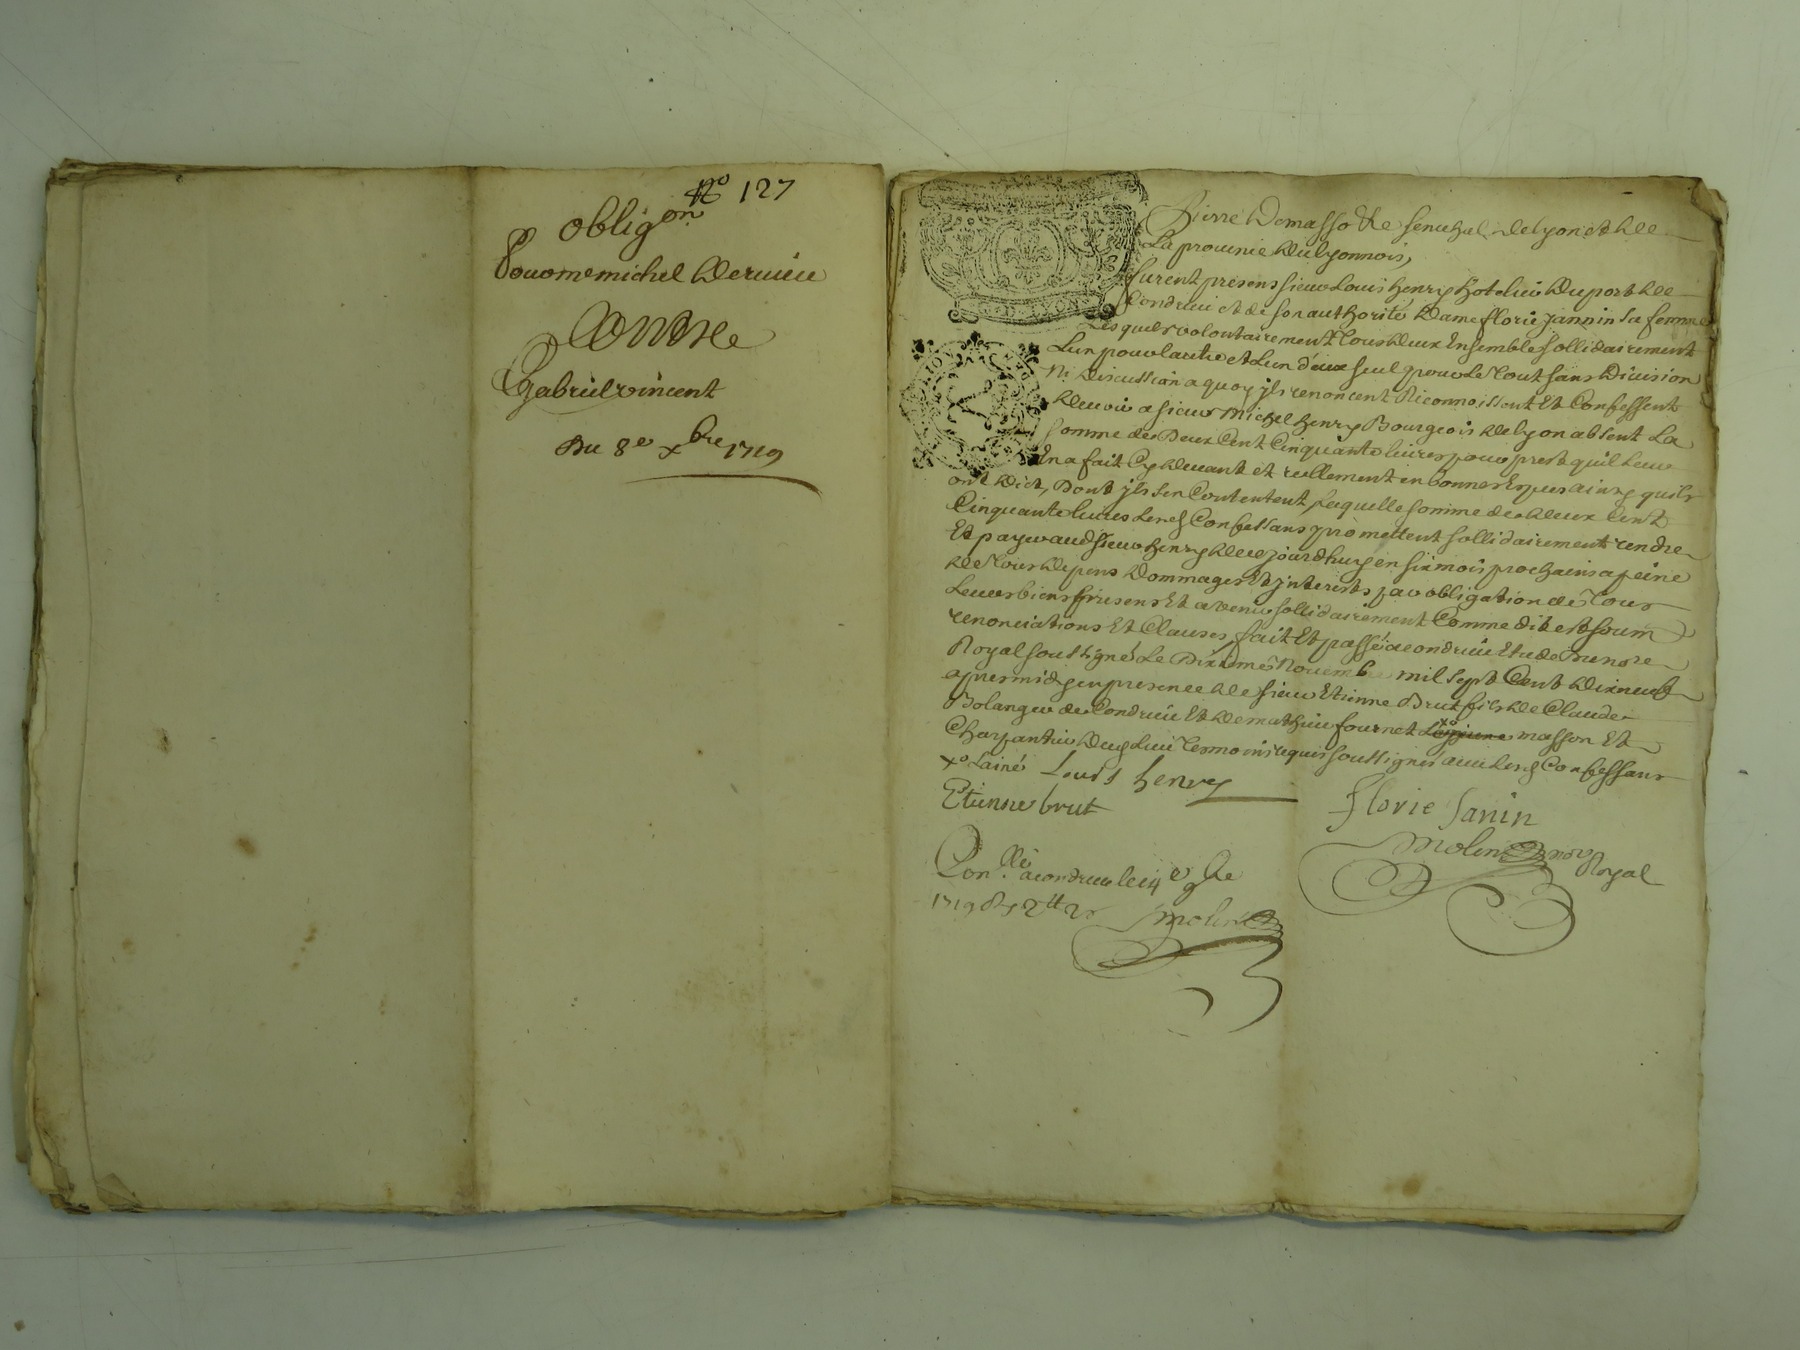 No 127
obligon
Pour me michel Dervieu
Contre
Gabriel vincent
Du 8e xbre 1719
Pierre Demasso &e senechal de lyon et de
La province du lyonnois,
furent presens sieur Louis henry hotelier du port de
Condrieu et de son authorité Dame florie jannin sa femme
Lesquels volontairement tous deux Ensemble sollidairement
Lun pour lautre et Lun d'eux seul pour le tout sans Division
ni Discussion a quoy ils renoncent Reconnoissent Et Confessent
devoir a sieur michel henry Bourgeois de lyon absent La
somme de Deux Cent Cinquante livres pour prest quil Leur
En a fait Cy devant et reellement en bonnes Espeses ainsy quils
ont dict, Dont ils sen Contentent, Laquelle somme de deux Cent
Cinquante livres Lesd Confessans promettent sollidairement rendre
Et payer aud sieur henry de ce jourdhuy en six mois prochains a peine
de tous depens Dommages Et jnterests par obligation de tous
Leurs biens presens Et a venir sollidairement Comme dit est soum
renonciations Et Clauses, fait Et passé a condrieu Etude Du nore
Royal soussigné Le Dixieme Novemb mil sept Cent dixneuf
apres midy en presence de sieur Etienne Brut fils de Claude
Bolanger de Condrieu Et de mathieu fournet xo masson Et
Charpantier dud lieu temoins requis soussignes avec Lesd Confessans
xo Lainé Louis henry
Etienne brut
florie Janin
molin nore Royal
Conllé a condrieu le 14e 9bre
1719
molin